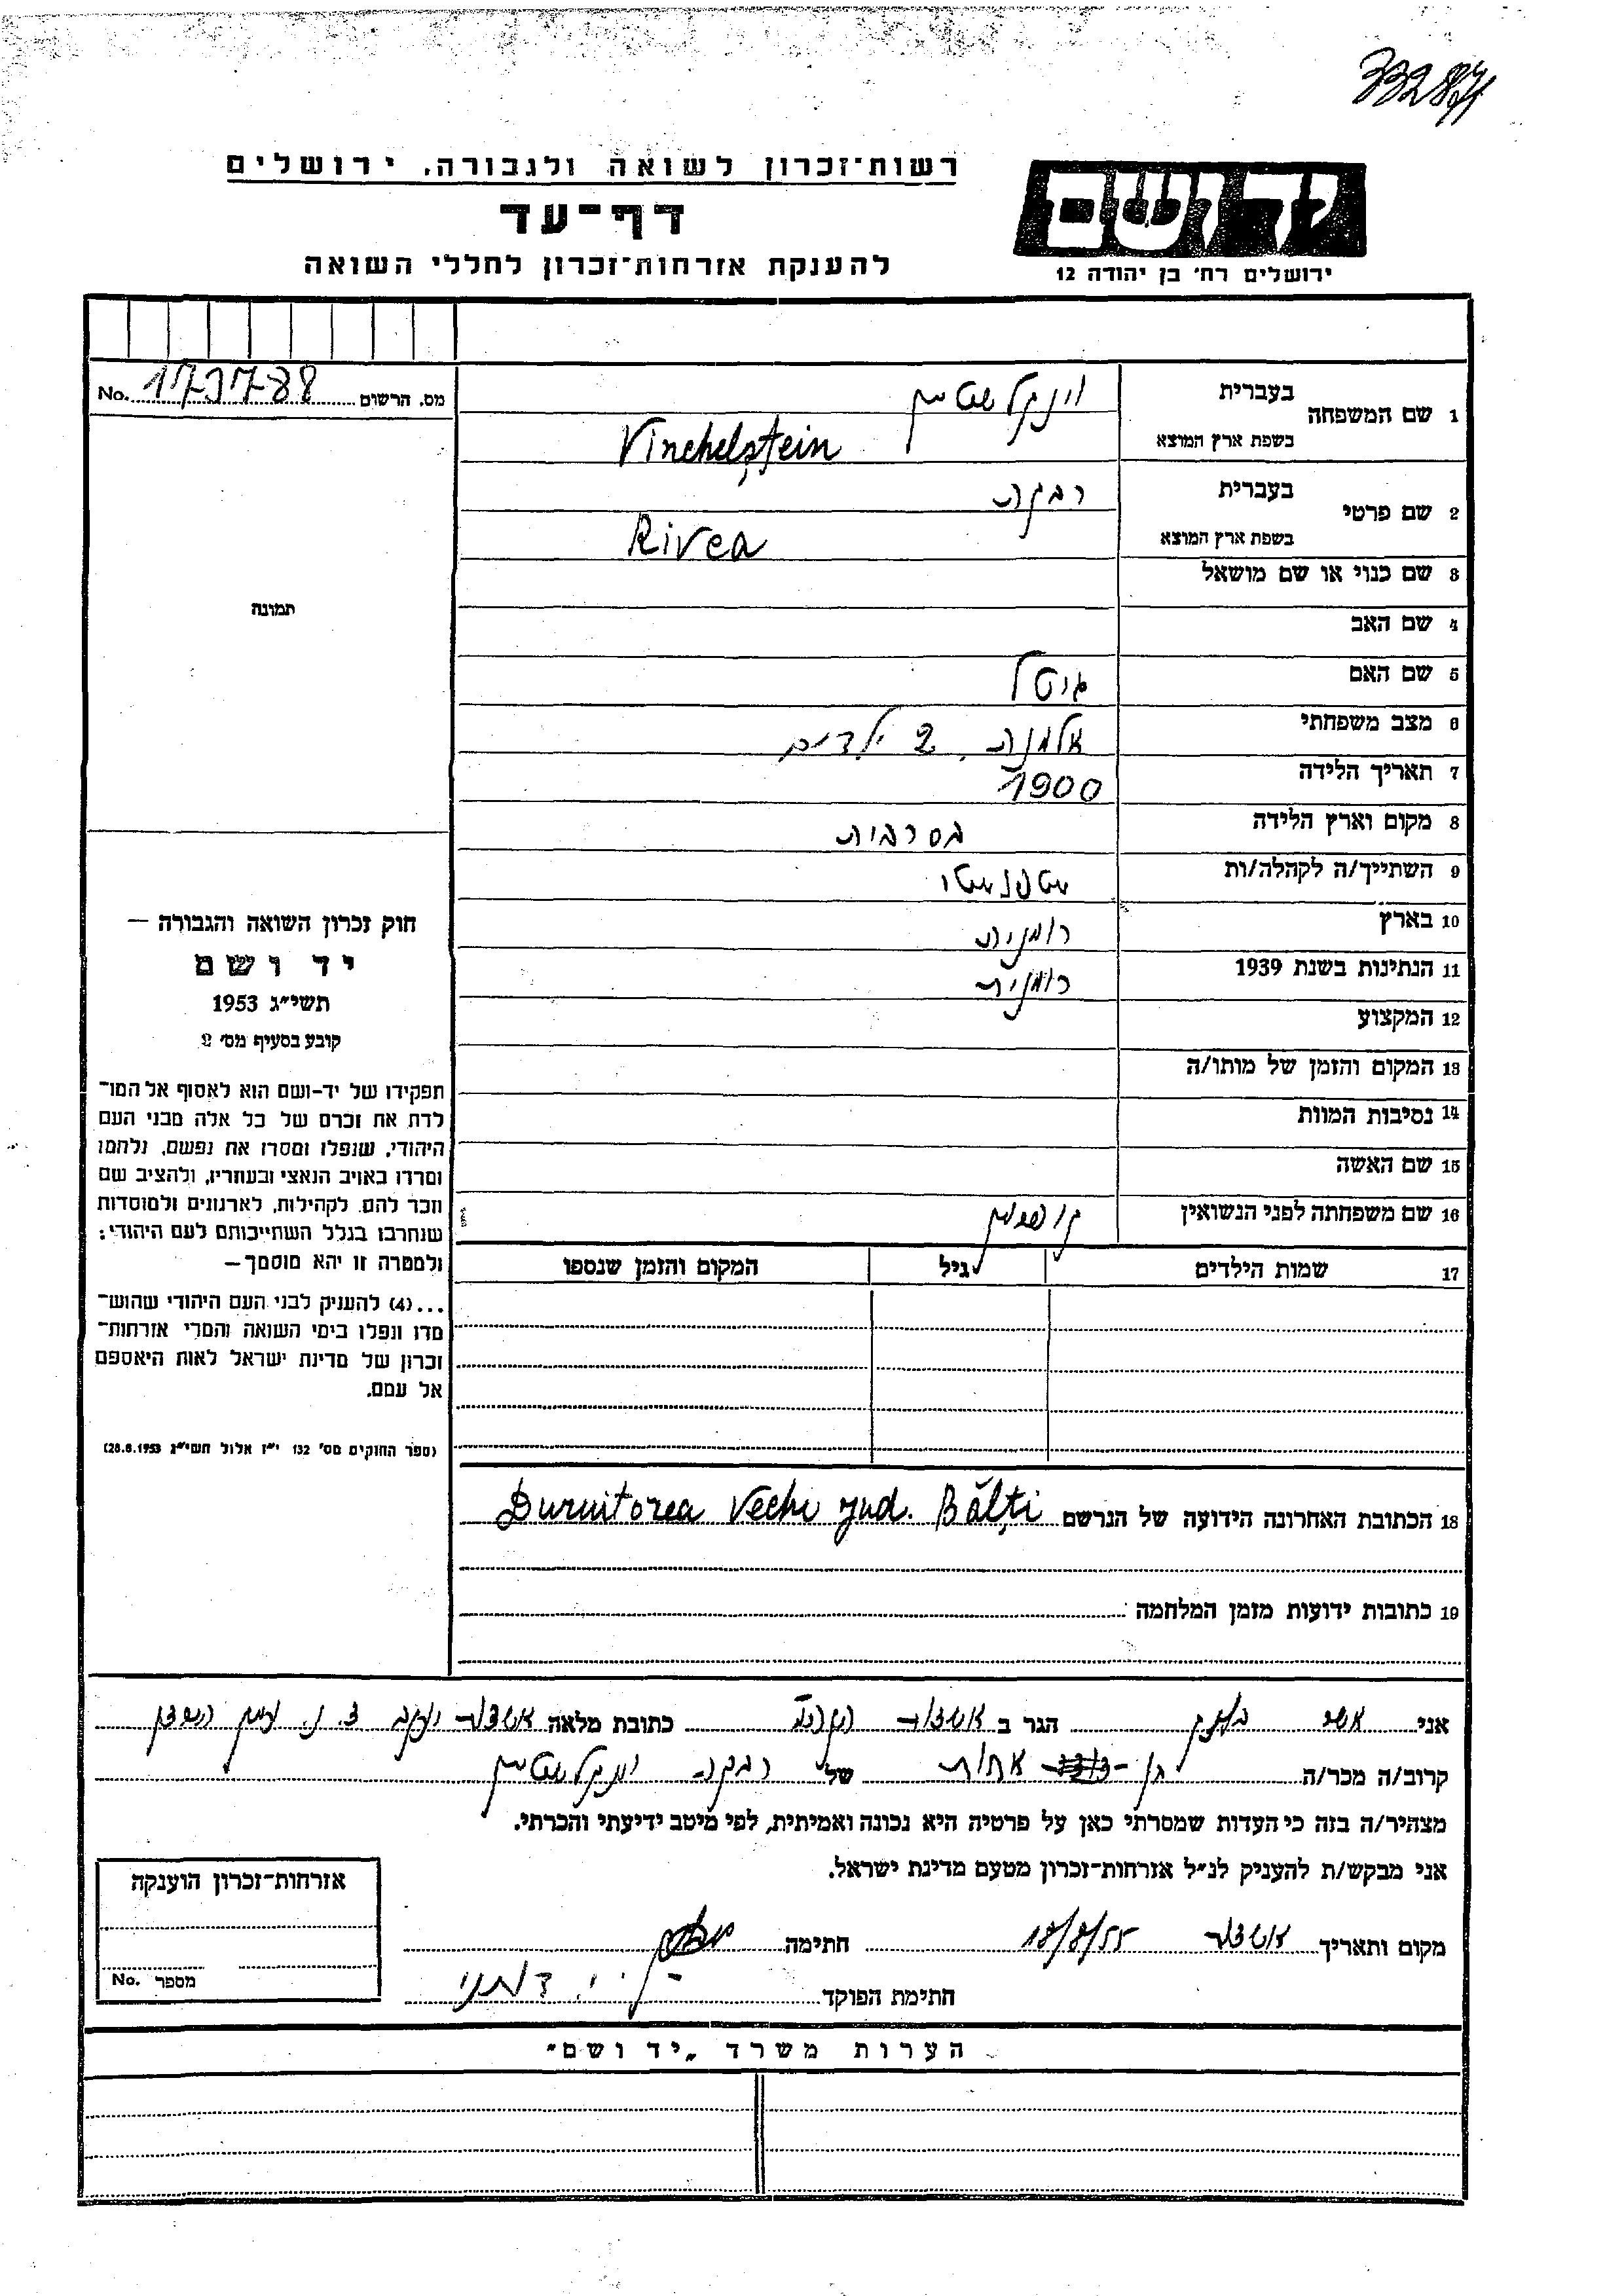 רשות־זכרון לשואה ולגבורה, ירושלים
דף־עד
להענקת אזרחות־זכרון לחללי השואה
יד ושם
ירושלים רח׳ בן יהודה 12
מס. הרשום No. 173788
1 שם המשפחה בעברית וינקלשטיין
בשפת ארץ המוצא Vinchelştein
2 שם פרטי בעברית רבקה
בשפת ארץ המוצא Rivca
3 שם כנוי או שם מושאל
4 שם האב
5 שם האם גיטל
6 מצב משפחתי אלמנה, 2 ילדים
7 תאריך הלידה 1900
8 מקום וארץ הלידה בסרביה
9 השתייך/ה לקהלה/ות
10 בארץ רומניה
11 הנתינות בשנת 1939 רומנית
12 המקצוע
13 המקום והזמן של מותו/ה
14 נסיבות המוות
15 שם האשה
16 שם משפחתה לפני הנשואין
17 שמות הילדים גיל המקום והזמן שנספו
תמונה
חוק זכרון השואה והגבורה —
יד ושם
תשי״ג 1953
קובע בסעיף מס׳ 2
תפקידו של יד־ושם הוא לאסוף אל המו־
לדת את זכרם של כל אלה מבני העם
היהודי, שנפלו ומסרו את נפשם, נלחמו
ומרדו באויב הנאצי ובעוזריו, ולהציב שם
וזכר להם, לקהילות, לארגונים ולמוסדות
שנחרבו בגלל השתייכותם לעם היהודי;
ולמטרה זו יהא מוסמך —
...(4) להעניק לבני העם היהודי שהוש־
מדו ונפלו בימי השואה והמרי אזרחות־
זכרון של מדינת ישראל לאות היאספם
אל עמם.
(ספר החוקים מס׳ 132 י״ז אלול תשי״ג 28.8.1953)
18 הכתובת האחרונה הידועה של הנרשם Duruitorea Vechi jud. Bălţi
19 כתובות ידועות מזמן המלחמה
אני הגר ב כתובת מלאה
קרוב/ה מכר/ה בן אחות של רבקה וינקלשטיין
מצהיר/ה בזה כי העדות שמסרתי כאן על פרטיה היא נכונה ואמיתית, לפי מיטב ידיעתי והכרתי.
אני מבקש/ת להעניק לנ״ל אזרחות־זכרון מטעם מדינת ישראל.
מקום ותאריך 18/8/55 חתימה
חתימת הפוקד
אזרחות־זכרון הוענקה
מספר No.
הערות משרד „יד ושם״